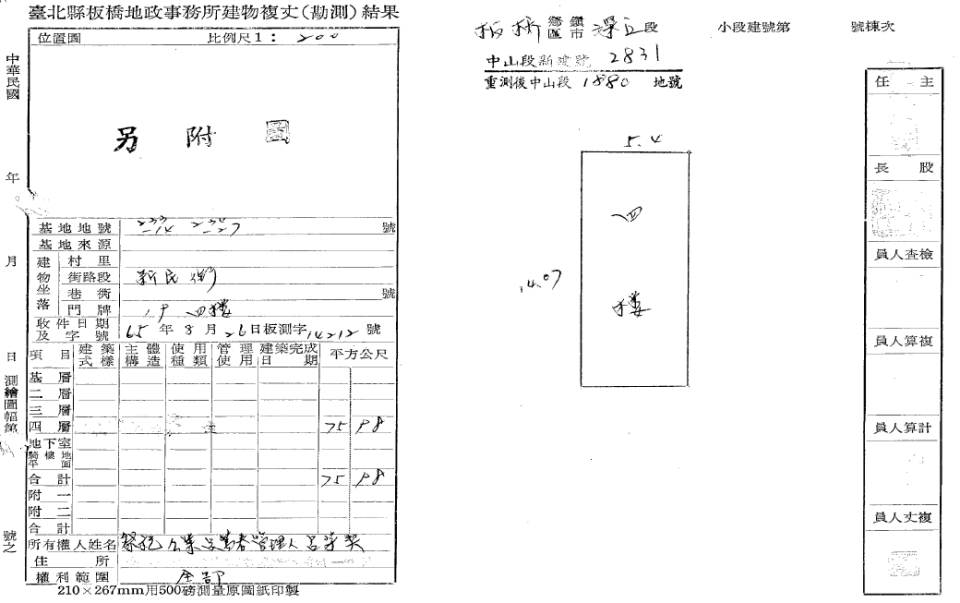 臺北縣板橋地政事務所建物複丈(勘測)結果
位置圖 比例尺1: 200
另附圖
中華民國 年 月 日 測繪圖幅第 號之
基地地號 號
基地來源
建物坐落
村里
街路段 新民街
巷衖 號
門牌 四樓
收件日期及字號 65年8月26日板測字 號
項目 建築式樣 主體構造 使用種類 管理使用 建築完成日期 平方公尺
基層
二層
三層
四層 75 98
地下室
騎樓地平面
合計 75 98
附一
附二
合計
所有權人姓名
住所
權利範圍 全部
210×267mm用500磅測量原圖紙印製
板橋 鄉鎮區市 深丘段 小段建號第 號棟次
中山段新建號 2831
重測後中山段 1880 地號
5.4
14.07
四樓
主任
股長
檢查人員
複算人員
計算人員
複丈人員